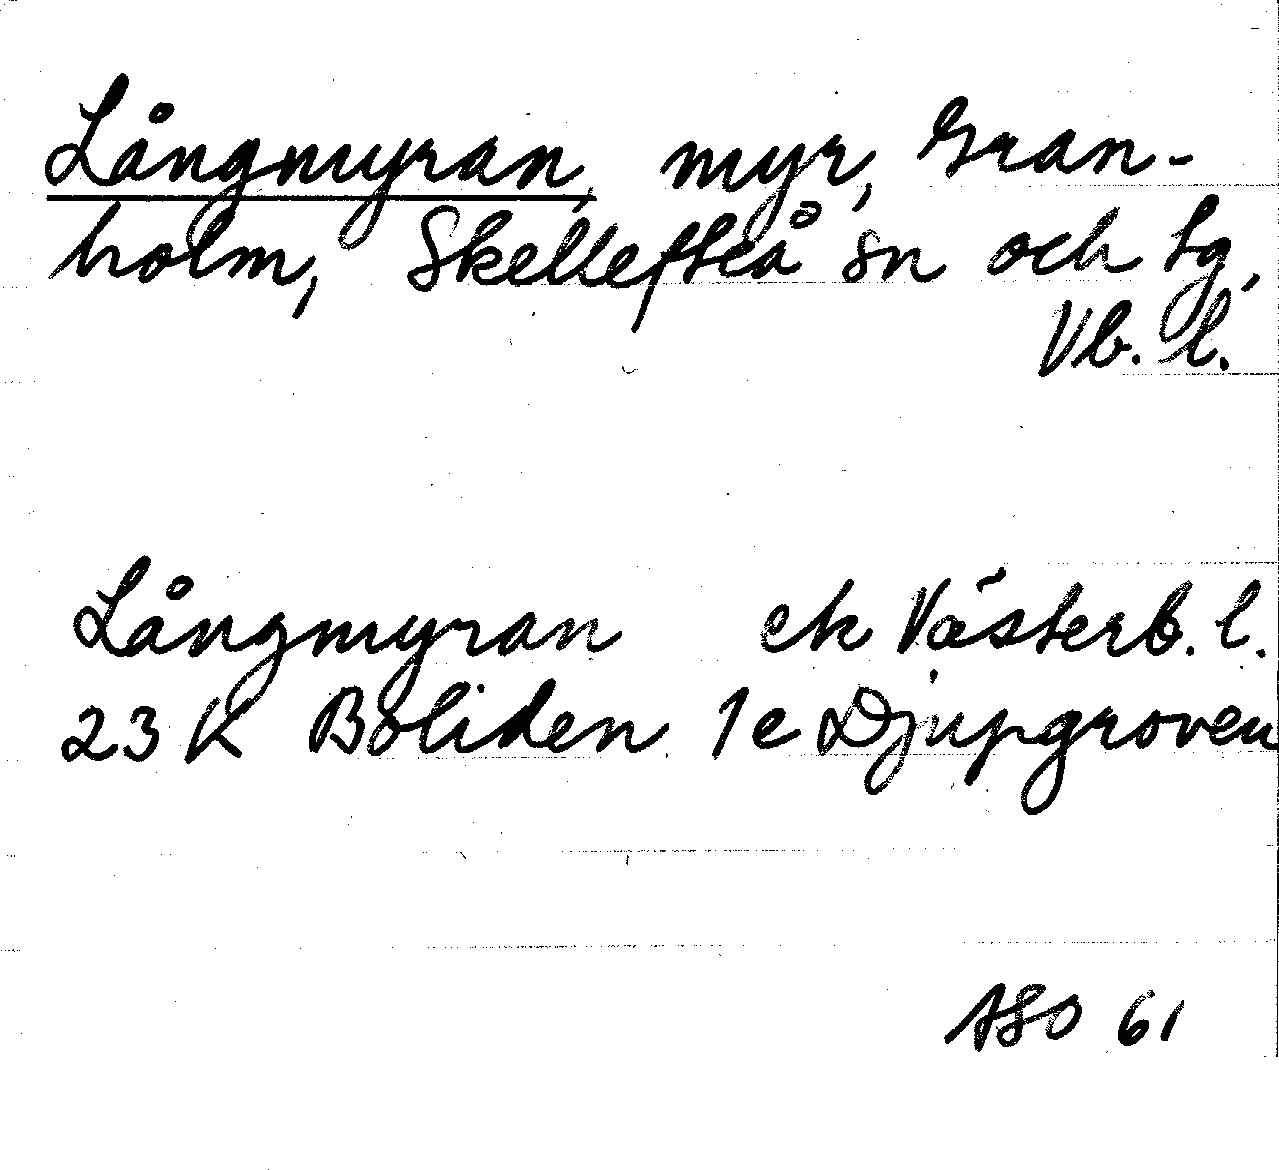 Långmyran, myr, Gran-
holm, Skellefteå sn och tg,
Vb. l.
Långmyran ek Västerb. l.
23 K Boliden 1e Djupgroven
ASO 61